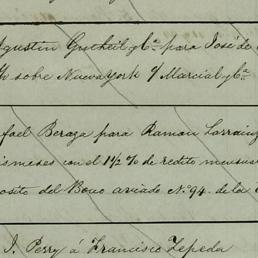 Agustin Gutheil y Ca. para José de
sobre Nueva York c/ Marcial y Ca.
Rafael Beraza para Ramon Larrainz
seis meses con el 1 1/2 % de redito mensual
deposito del Bono aviado No. 94. de la
J. Perry á Francisco Zepeda